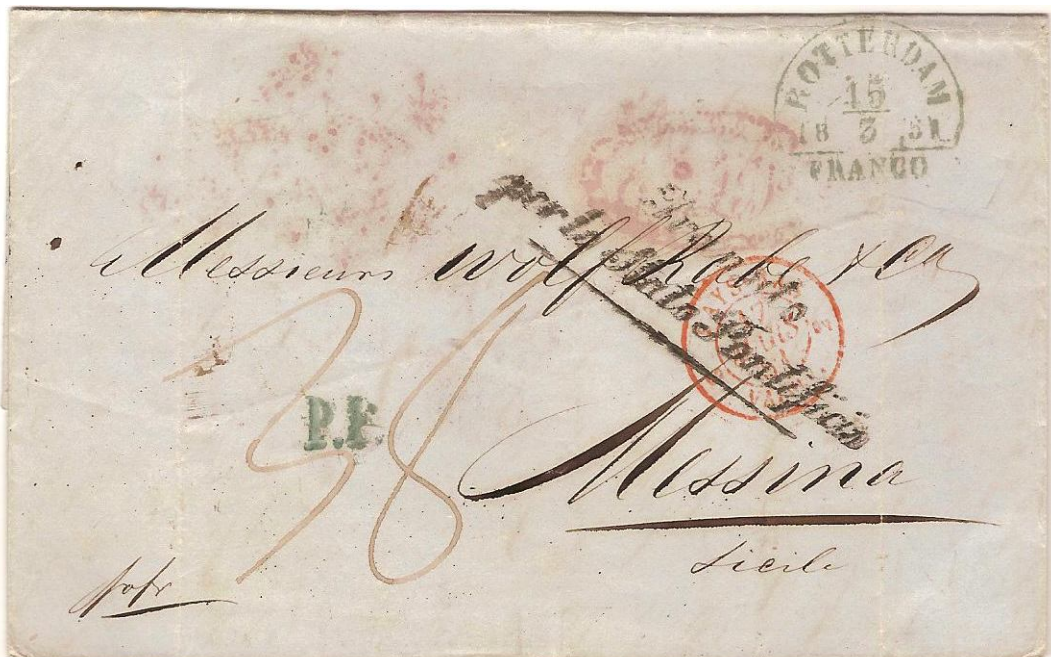 ROTTERDAM
15
18 3 51
FRANCO
per lo Stato Pontificio
Messieurs Wolf Rabe & Co
38
P.P.
Messina
Sicile